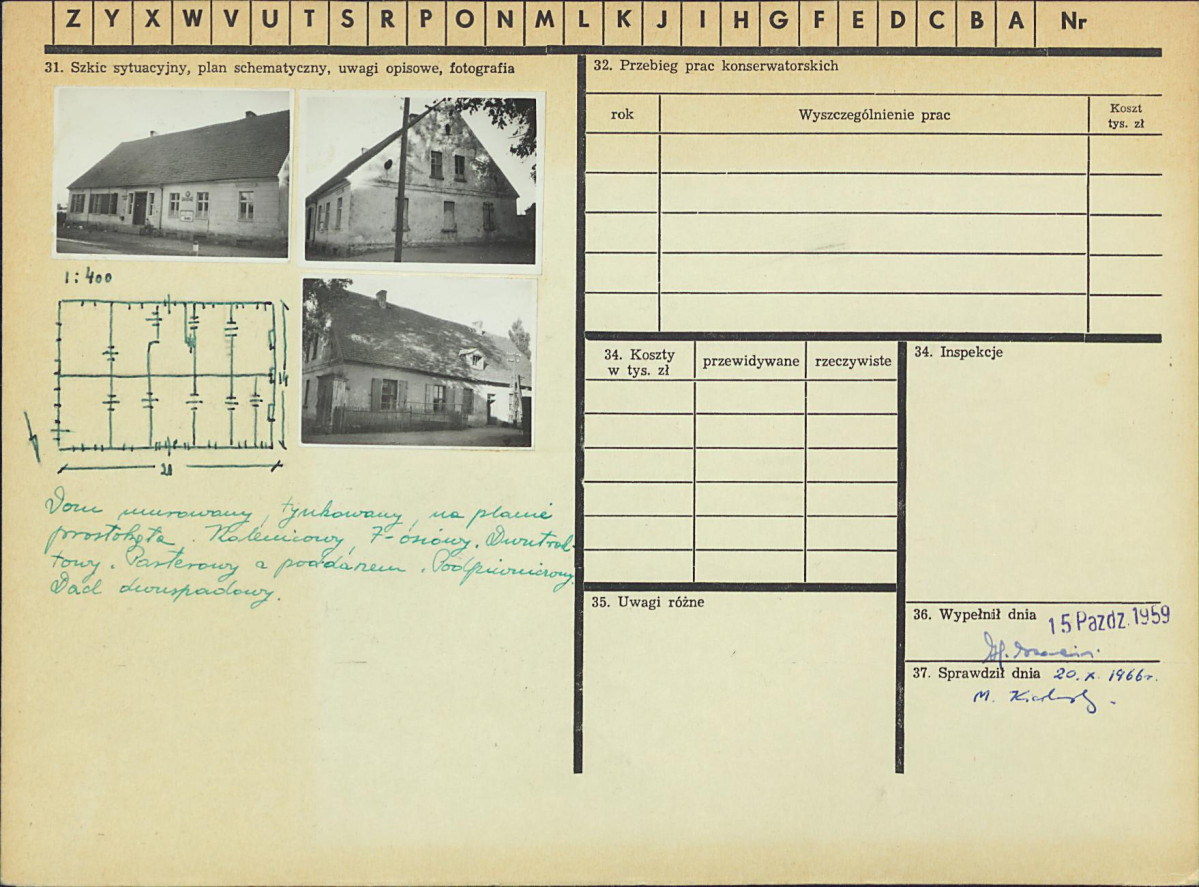 Z Y X W V U T S R P O N M L K J I H G F E D C B A Nr
31. Szkic sytuacyjny, plan schematyczny, uwagi opisowe, fotografia
1:400
14
20
Dom murowany, tynkowany, na planie
prostokąta. Kalenicowy, 7-osiowy. Dwutrak-
towy. Parterowy z poddaszem. Podpiwniczony.
Dach dwuspadowy.
32. Przebieg prac konserwatorskich
rok Wyszczególnienie prac Koszt
tys. zł
34. Koszty
w tys. zł przewidywane rzeczywiste
34. Inspekcje
35. Uwagi różne
36. Wypełnił dnia 15 Paźdz. 1959
37. Sprawdził dnia 20.X.1966r.
M.